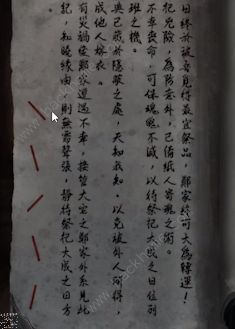 日終於被吾覓得最宜祭品，鄭家終可大爲轉運！
祀兇險，為防意外，已備紙人寄魂之術。
不幸喪命，可保魂魄不滅，以待祭祀大成之日位列
班之機。
典已藏於隱蔽之處，天知我知，以免被外人所得，
成他人嫁衣。
有災禍使鄭家遭遇不幸，接管大宅之鄭家外系見此
記，知曉緣由，則無需聲張，靜待祭祀大成之日方
。